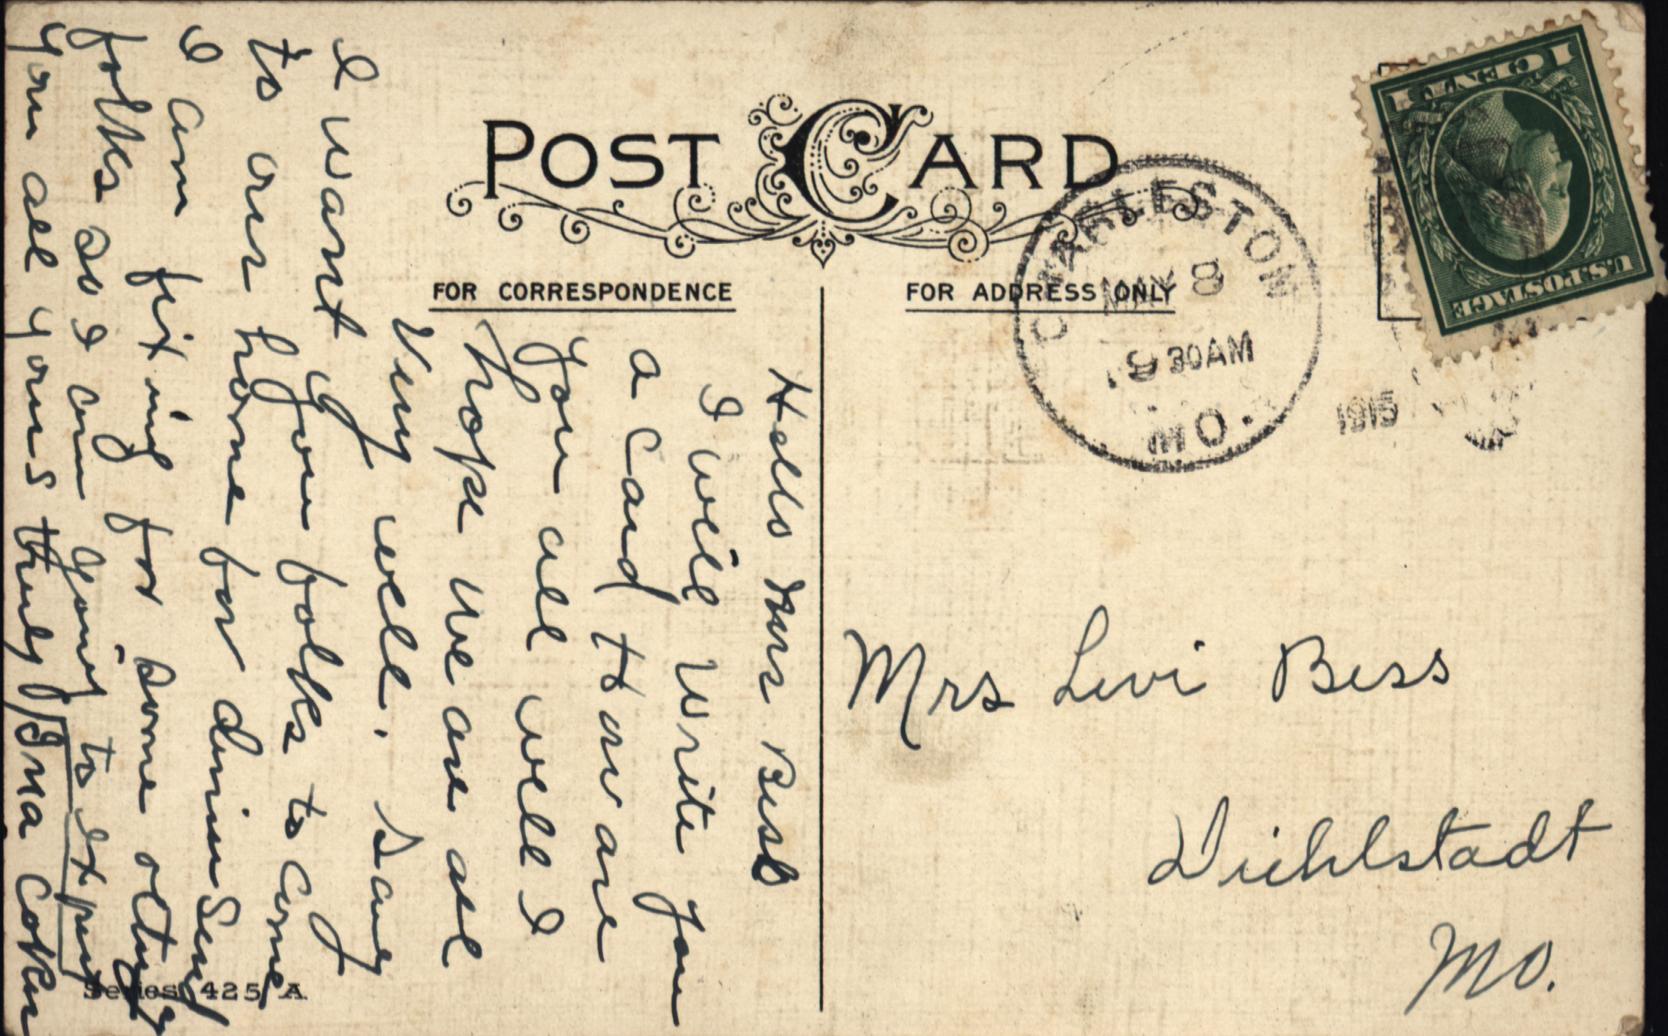 POST CARD
FOR CORRESPONDENCE
FOR ADDRESS ONLY
CHARLESTON
MAY 8
30AM
MO.
1915
1 CENT 1
U.S. POSTAGE
Hello Mrs Bess
I will write you
a card How are
you all well I
hope we are all
Very well. Say
I want you folks to come
to our home for dinner Sunday
I am fixing for some other
folks so I am going to expect
you all yours truly Ina Coker
Mrs Levi Bess
Diehlstadt
Mo.
Series 425 A